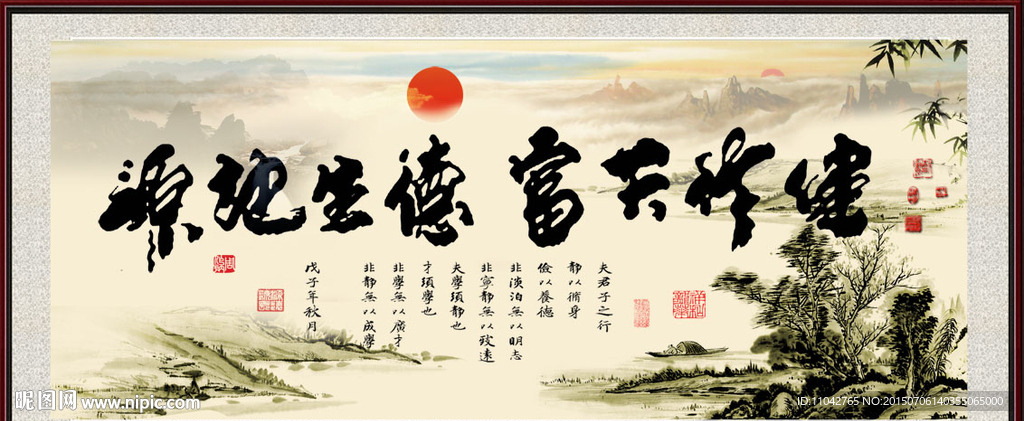 健 富德生 源
夫君子之行
静以脩身
儉以養德
非淡泊無以明志
非寧静無以致遠
夫學須静也
才須學也
非學無以廣才
非静無以成學
戊子年秋月
昵图网 www.nipic.com
ID:11042765 NO:20150706140355065000